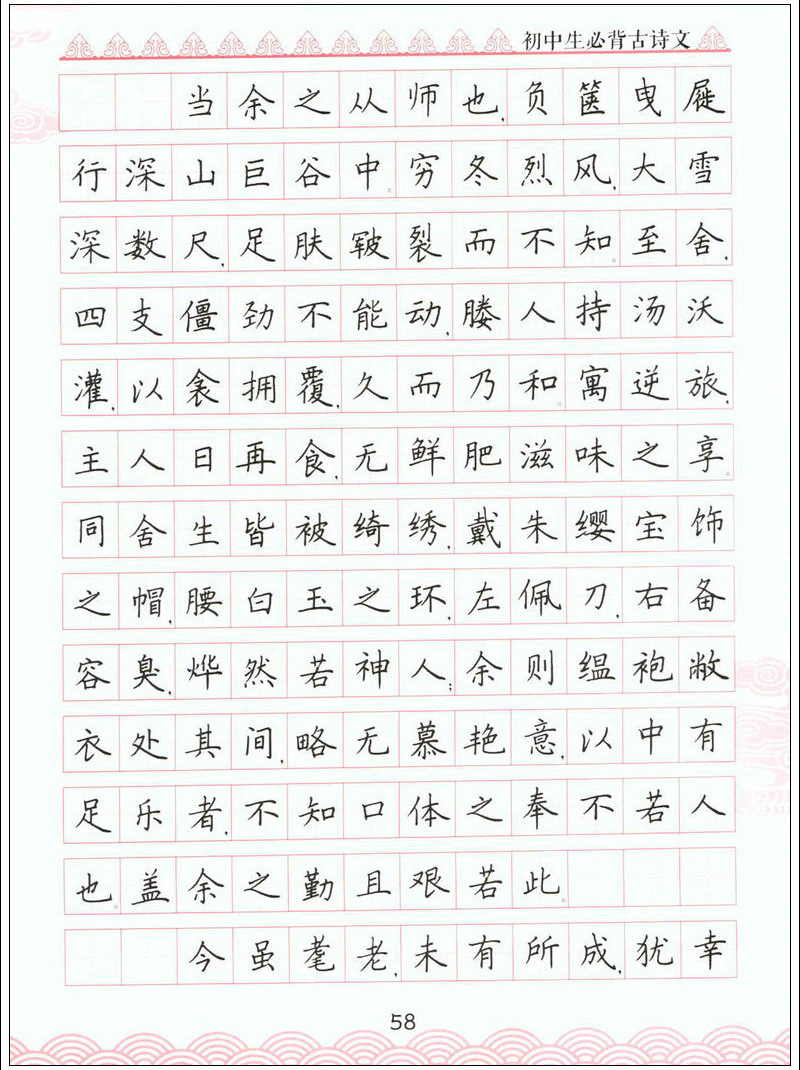 初中生必背古诗文
当余之从师也,负箧曳屣
行深山巨谷中。穷冬烈风,大雪
深数尺,足肤皲裂而不知。至舍,
四支僵劲不能动,媵人持汤沃
灌,以衾拥覆,久而乃和。寓逆旅,
主人日再食,无鲜肥滋味之享。
同舍生皆被绮绣,戴朱缨宝饰
之帽,腰白玉之环,左佩刀,右备
容臭,烨然若神人;余则缊袍敝
衣处其间,略无慕艳意,以中有
足乐者,不知口体之奉不若人
也。盖余之勤且艰若此。
今虽耄老,未有所成,犹幸
58